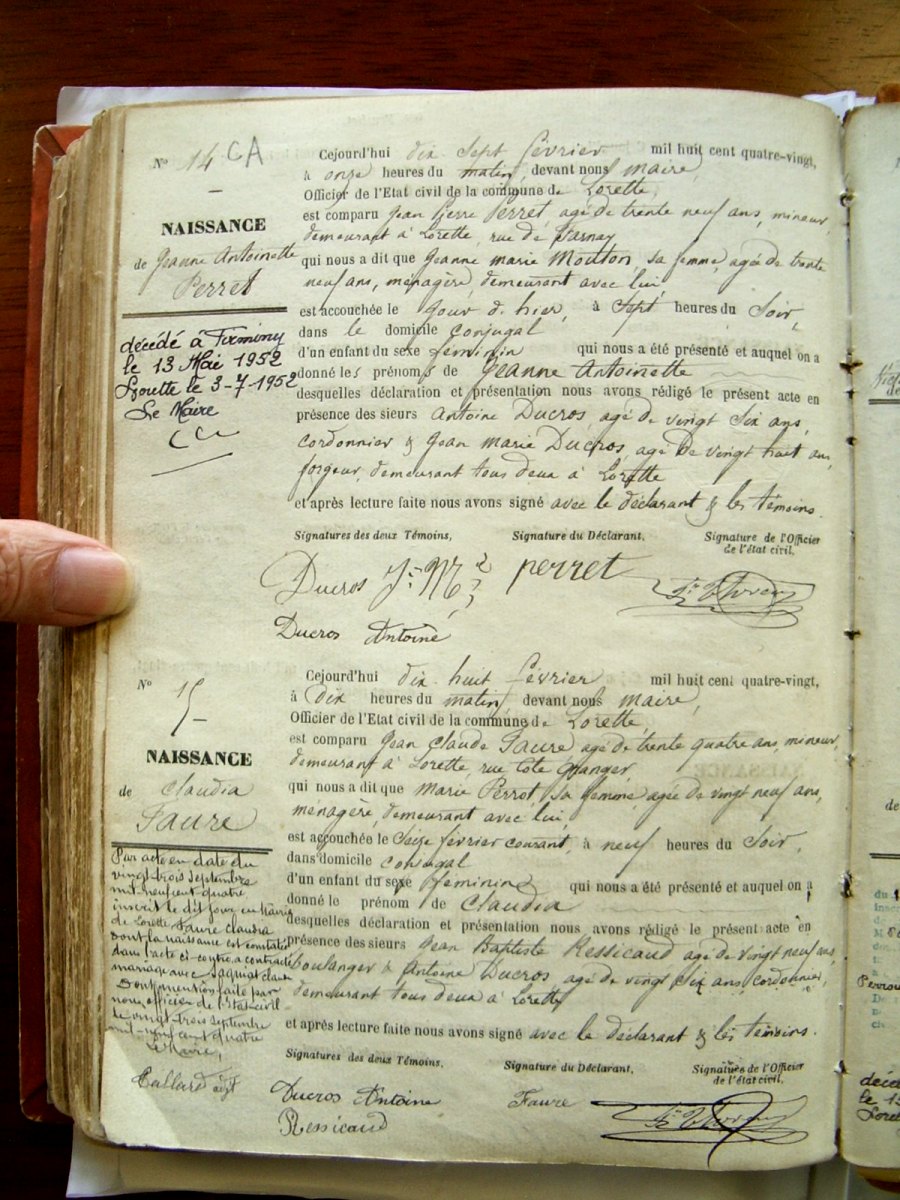 N° 14 CA
NAISSANCE
de Jeanne Antoinette
Perret
décédé à Firminy
le 13 Mai 1952
Lorette le 3-7-1952
Le Maire
Cejourd'hui dix sept février mil huit cent quatre-vingt,
à onze heures du matin, devant nous maire,
Officier de l'Etat civil de la commune de Lorette,
est comparu Jean Pierre Perret, agé de trente neuf ans, mineur,
demeurant à Lorette, rue de Farnay
qui nous a dit que Jeanne marie Mouton, sa femme, agée de trente
neuf ans, ménagère, demeurant avec lui
est accouchée le jour d'hier, à sept heures du soir,
dans le domicile conjugal
d'un enfant du sexe feminin qui nous a été présenté et auquel on a
donné les prénoms de Jeanne Antoinette
desquelles déclaration et présentation nous avons rédigé le présent acte en
présence des sieurs Antoine Ducros, agé de vingt six ans,
cordonnier & Jean marie Ducros, agé de vingt huit ans,
forgeur, demeurant tous deux à Lorette
et après lecture faite nous avons signé avec le déclarant & les témoins.
Signatures des deux Témoins, Signature du Déclarant, Signature de l'Officier
de l'état civil,
Ducros J-M perret
Ducros Antoine
N° 15
NAISSANCE
de Claudia
Faure
Par acte en date du
vingt trois septembre
mil neuf cent quatre
inscrit le dit jour en Mairie
de Lorette, Faure Claudia
dont la naissance est constatée
dans l'acte ci-contre a contracté
mariage avec
Dont mention faite par
nous officier de l'état-civil
le vingt-trois septembre
mil-neuf cent quatre
Le Maire,
Cejourd'hui dix huit février mil huit cent quatre-vingt,
à dix heures du matin, devant nous maire,
Officier de l'Etat civil de la commune de Lorette
est comparu Jean Claude Faure agé de trente quatre ans, mineur,
demeurant à Lorette, rue Côte Granger
qui nous a dit que Marie Perrot, sa femme, agée de vingt neuf ans,
ménagère, demeurant avec lui,
est accouchée le seize février courant, à neuf heures du soir,
dans domicile conjugal
d'un enfant du sexe féminin qui nous a été présenté et auquel on a
donné le prénom de Claudia
desquelles déclaration et présentation nous avons rédigé le présent acte en
présence des sieurs Jean Baptiste Ressicaud agé de vingt neuf ans,
boulanger & Antoine Ducros agé de vingt six ans, cordonnier,
demeurant tous deux à Lorette
et après lecture faite nous avons signé avec le déclarant & les témoins.
Signatures des deux Témoins, Signature du Déclarant, Signatures de l'Officier
de l'état civil,
Ducros Antoine Faure
Ressicaud